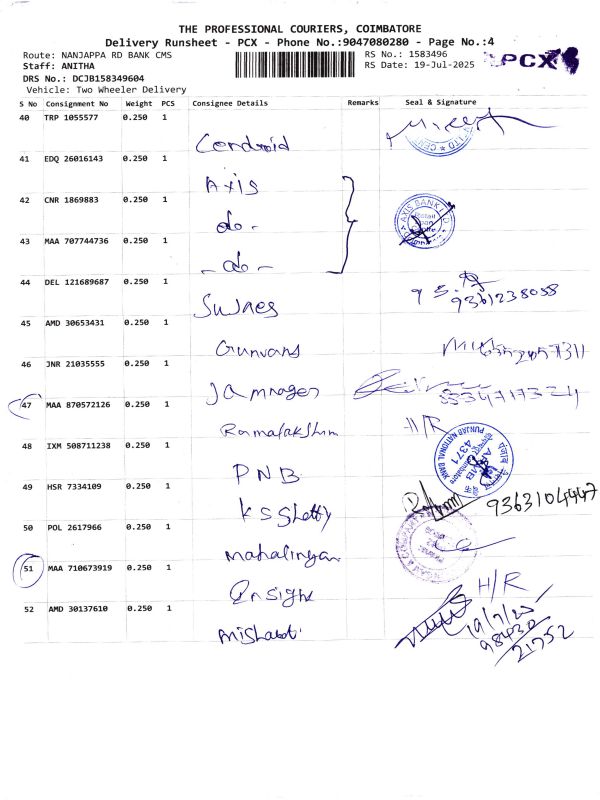 THE PROFESSIONAL COURIERS, COIMBATORE
Delivery Runsheet - PCX - Phone No.:9047080280 - Page No.:4
Route: NANJAPPA RD BANK CMS RS No.: 1583496
Staff: ANITHA RS Date: 19-Jul-2025
PCX
DRS No.: DCJB158349604
Vehicle: Two Wheeler Delivery
S No Consignment No Weight PCS Consignee Details Remarks Seal & Signature
40 TRP 1055577 0.250 1
41 EDQ 26016143 0.250 1
Axis
42 CNR 1869883 0.250 1
do -
AXIS BANK LTD
43 MAA 707744736 0.250 1
- do -
44 DEL 121689687 0.250 1
9361238058
45 AMD 30653431 0.250 1
Gunvans
46 JNR 21035555 0.250 1
Jamnager
47 MAA 870572126 0.250 1
H/R
48 IXM 508711238 0.250 1
PNB
PUNJAB NATIONAL BANK
4371
49 HSR 7334109 0.250 1
KS Shetty
9363104447
50 POL 2617966 0.250 1
Mahalingam
51 MAA 710673919 0.250 1
Insight
H/R
52 AMD 30137610 0.250 1
98430
21752